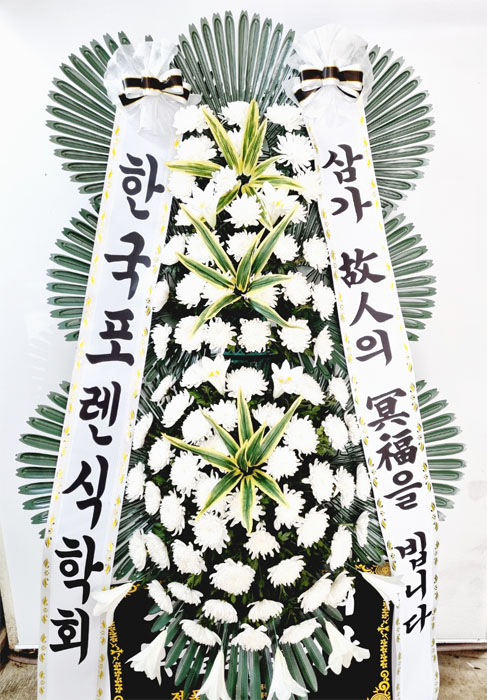 한국포렌식학회
삼가 故人의 冥福을 빕니다